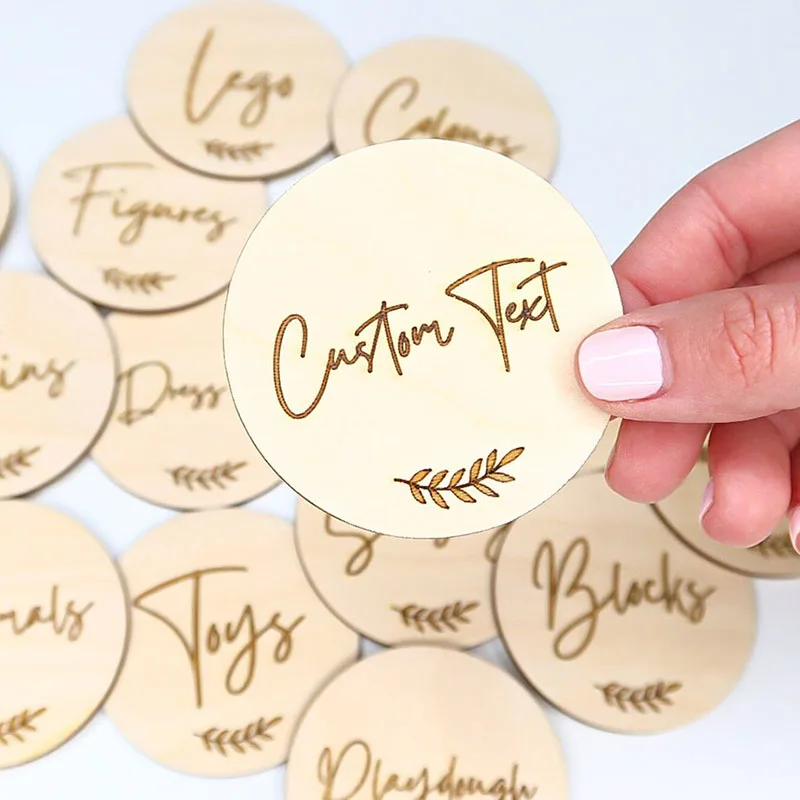 Lego
Colours
Figures
Custom Text
Dress
Toys
Blocks
Playdough